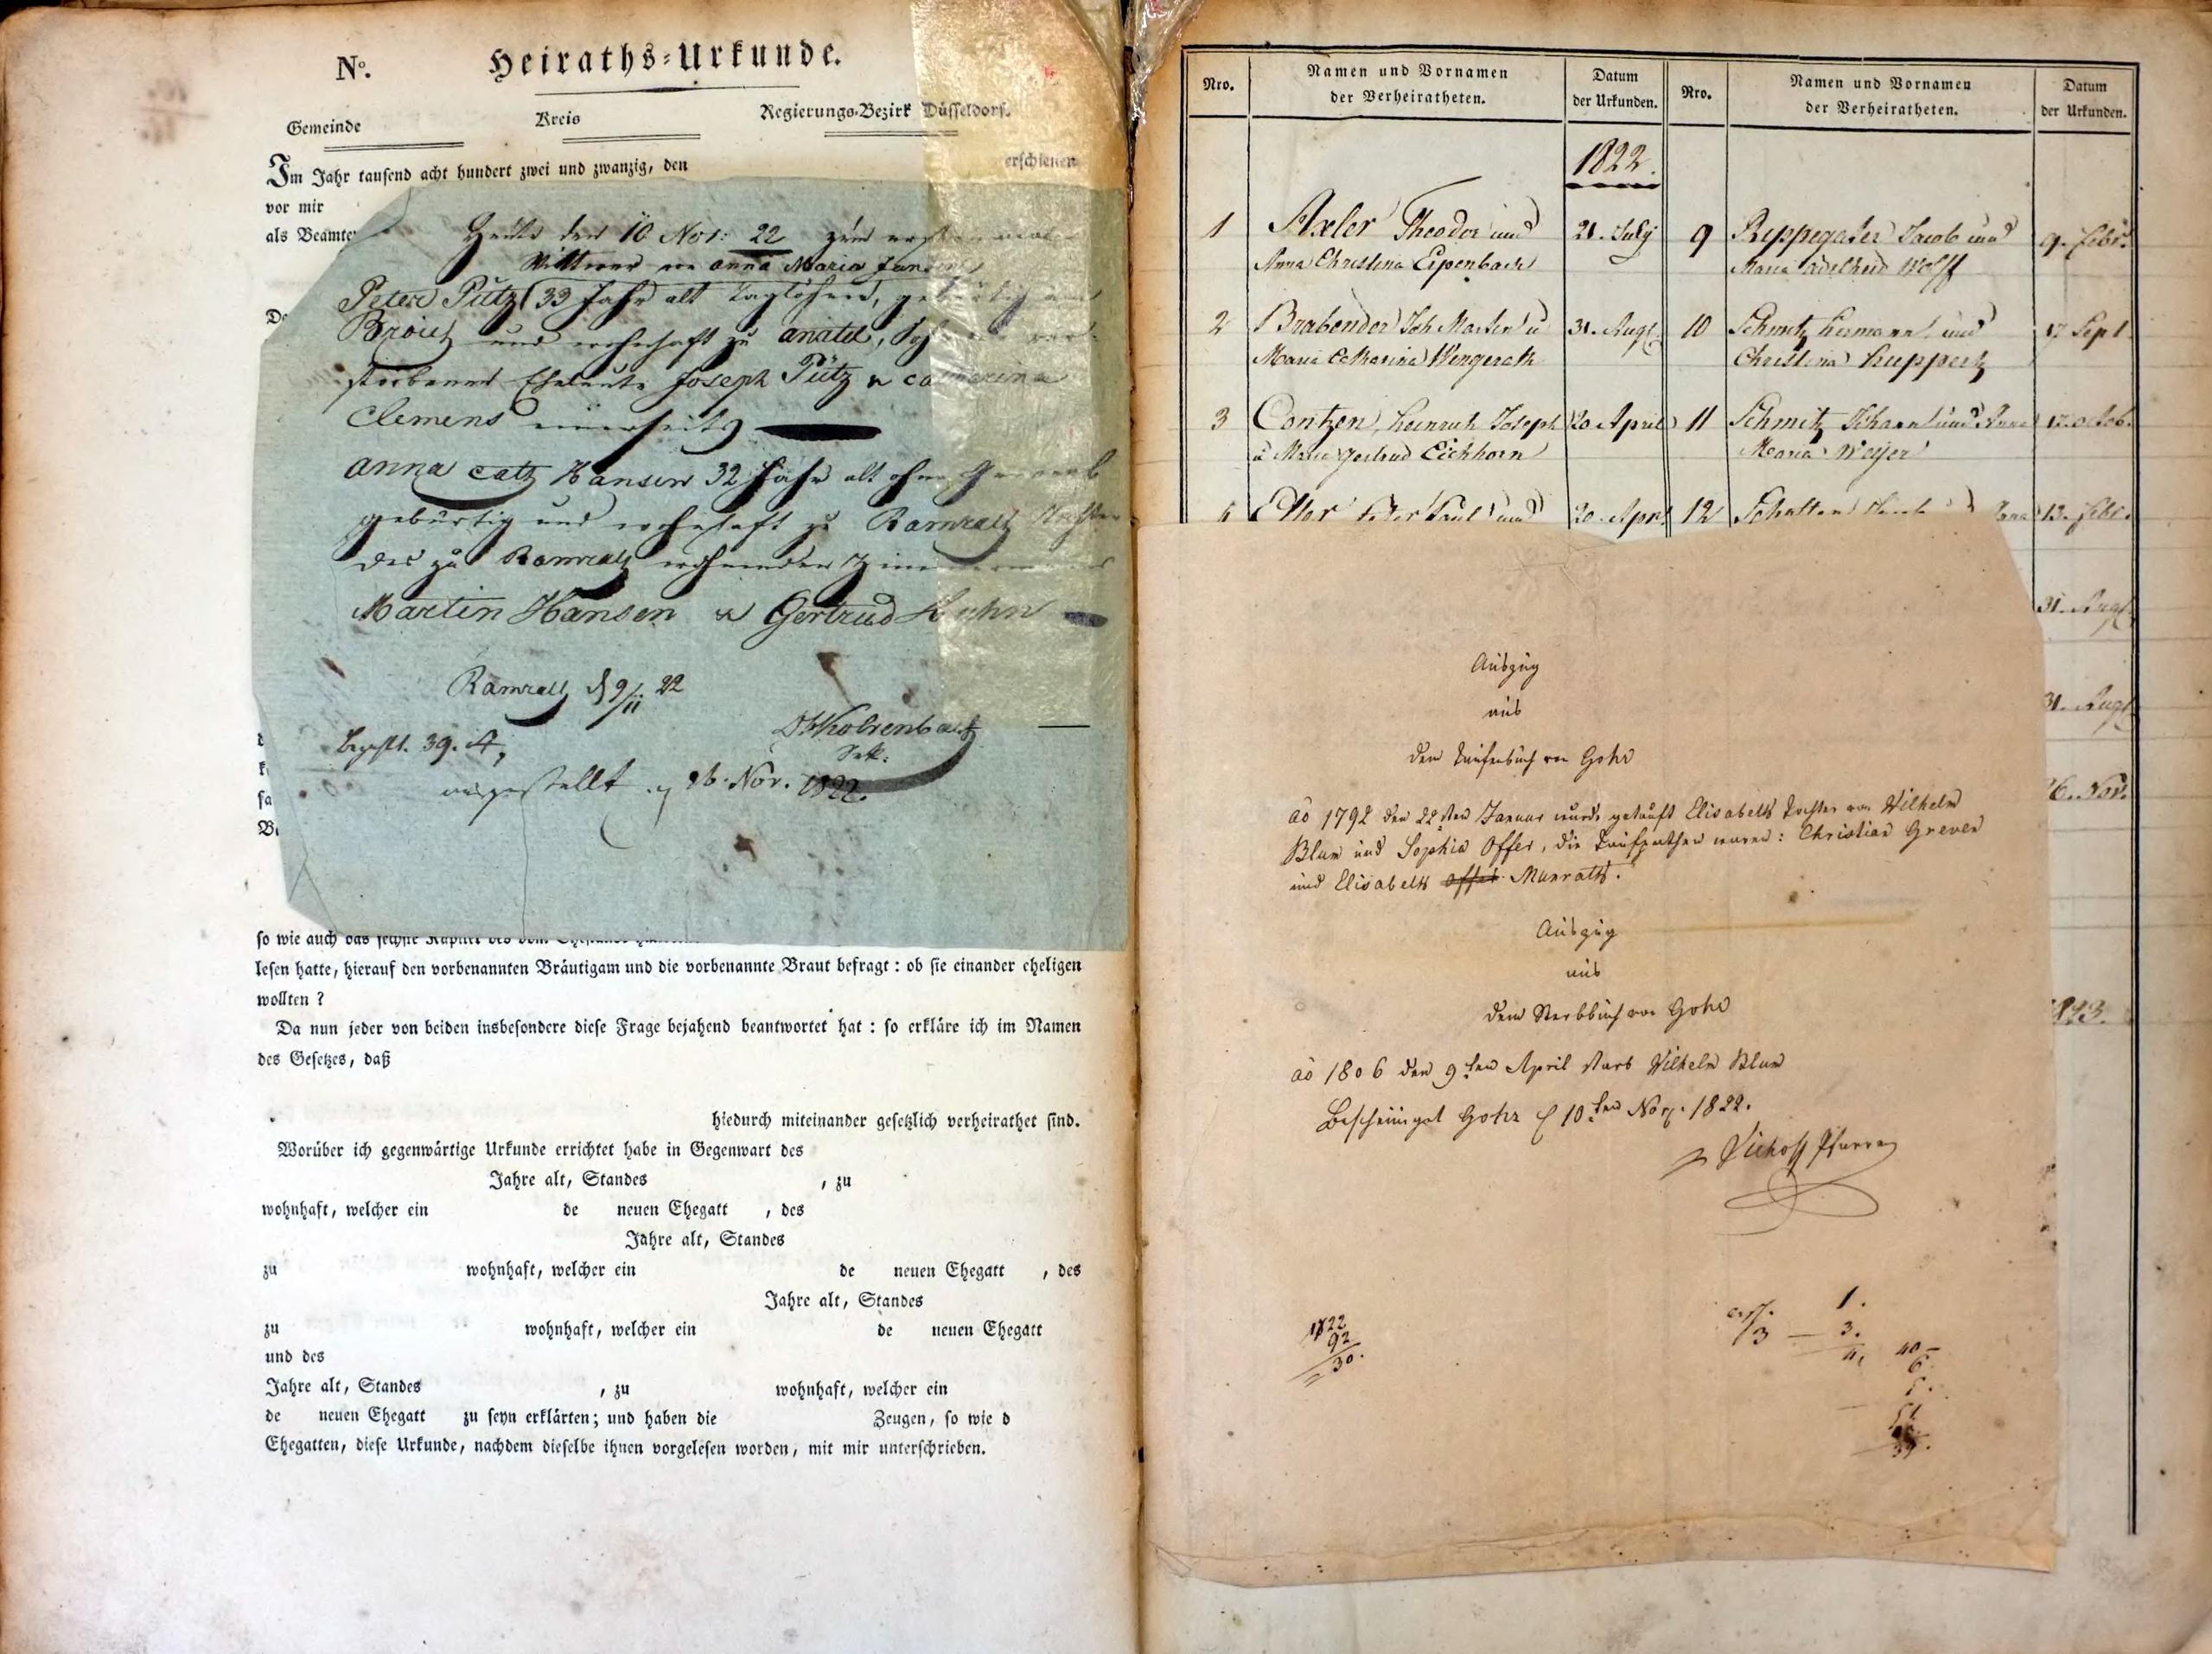 No. Heiraths-Urkunde.
Gemeinde Kreis Regierungs-Bezirk Düsseldorf.
Im Jahr tausend acht hundert zwei und zwanzig, den erschienen
vor mir
als Beamte
Heute den 10 Nov: 22 zum ersten mal
Wittwer von anna Maria Jansen
Peter Pütz 33 Jahr alt Taglöhner, gebürtig aus
Broich und wohnhaft zu anstel, Sohn der ver-
storbenen Eheleute Joseph Pütz u catharina
Clemens einerseits
anna cath Hansen 32 Jahr alt ohne Gewerb
gebürtig und wohnhaft zu Ramrath Tochter
des zu Ramrath wohnenden
Martin Hansen u Gertrud Hahn
Ramrath d 9/11 22
bezahlt. 39.
Sek:
ausgestellt 16. Nov. 1822.
so wie auch das sechste Kapitel des vom Ehestande
lesen hatte, hierauf den vorbenannten Bräutigam und die vorbenannte Braut befragt: ob sie einander eheligen
wollten?
Da nun jeder von beiden insbesondere diese Frage bejahend beantwortet hat: so erkläre ich im Namen
des Gesetzes, daß
hiedurch miteinander gesetzlich verheirathet sind.
Worüber ich gegenwärtige Urkunde errichtet habe in Gegenwart des
Jahre alt, Standes , zu
wohnhaft, welcher ein de neuen Ehegatt , des
Jahre alt, Standes
zu wohnhaft, welcher ein de neuen Ehegatt , des
Jahre alt, Standes
zu wohnhaft, welcher ein de neuen Ehegatt
und des
Jahre alt, Standes , zu wohnhaft, welcher ein
de neuen Ehegatt zu seyn erklärten; und haben die Zeugen, so wie d
Ehegatten, diese Urkunde, nachdem dieselbe ihnen vorgelesen worden, mit mir unterschrieben.
Nro. Namen und Vornamen der Verheiratheten. Datum der Urkunden. Nro. Namen und Vornamen der Verheiratheten. Datum der Urkunden.
1822.
1 Axler Theodor und 21. July 9 Reppegater Jacob und 9. Febr.
Anna Christina Eipenbach Maria Adelheid Wolff
2 Brabender Joh Martin u 31. Augt. 10 Schmitz Hermann und 17 Sept
Maria Catharina Wengerath Christina Huppertz
3 Contzen, Heinrich Joseph 20 April 11 Schmitz Johann und Anna 17. octob.
u Maria Gertrud Eichhorn Maria Weyer
4 Peter Paul und 20. Apr. 12 13. Febr.
31. Augt.
31. Augt.
16. Nov.
1823.
Auszug
aus
dem Taufbuch von Gohr
ao 1792 den 22sten Januar wurde getauft Elisabeth Tochter von Wilhelm
Blum und Sophia Offer, die Taufpathen waren: Christian Greven
und Elisabeth Offer Munrath.
Auszug
aus
dem Sterbbuch von Gohr
ao 1806 den 9ten April starb Wilhelm Blum
Bescheinigt Gohr d 10ten Nov. 1822.
Pfarrer
1822
92
30.
1.
3 — 3.
4,
40 —
6.